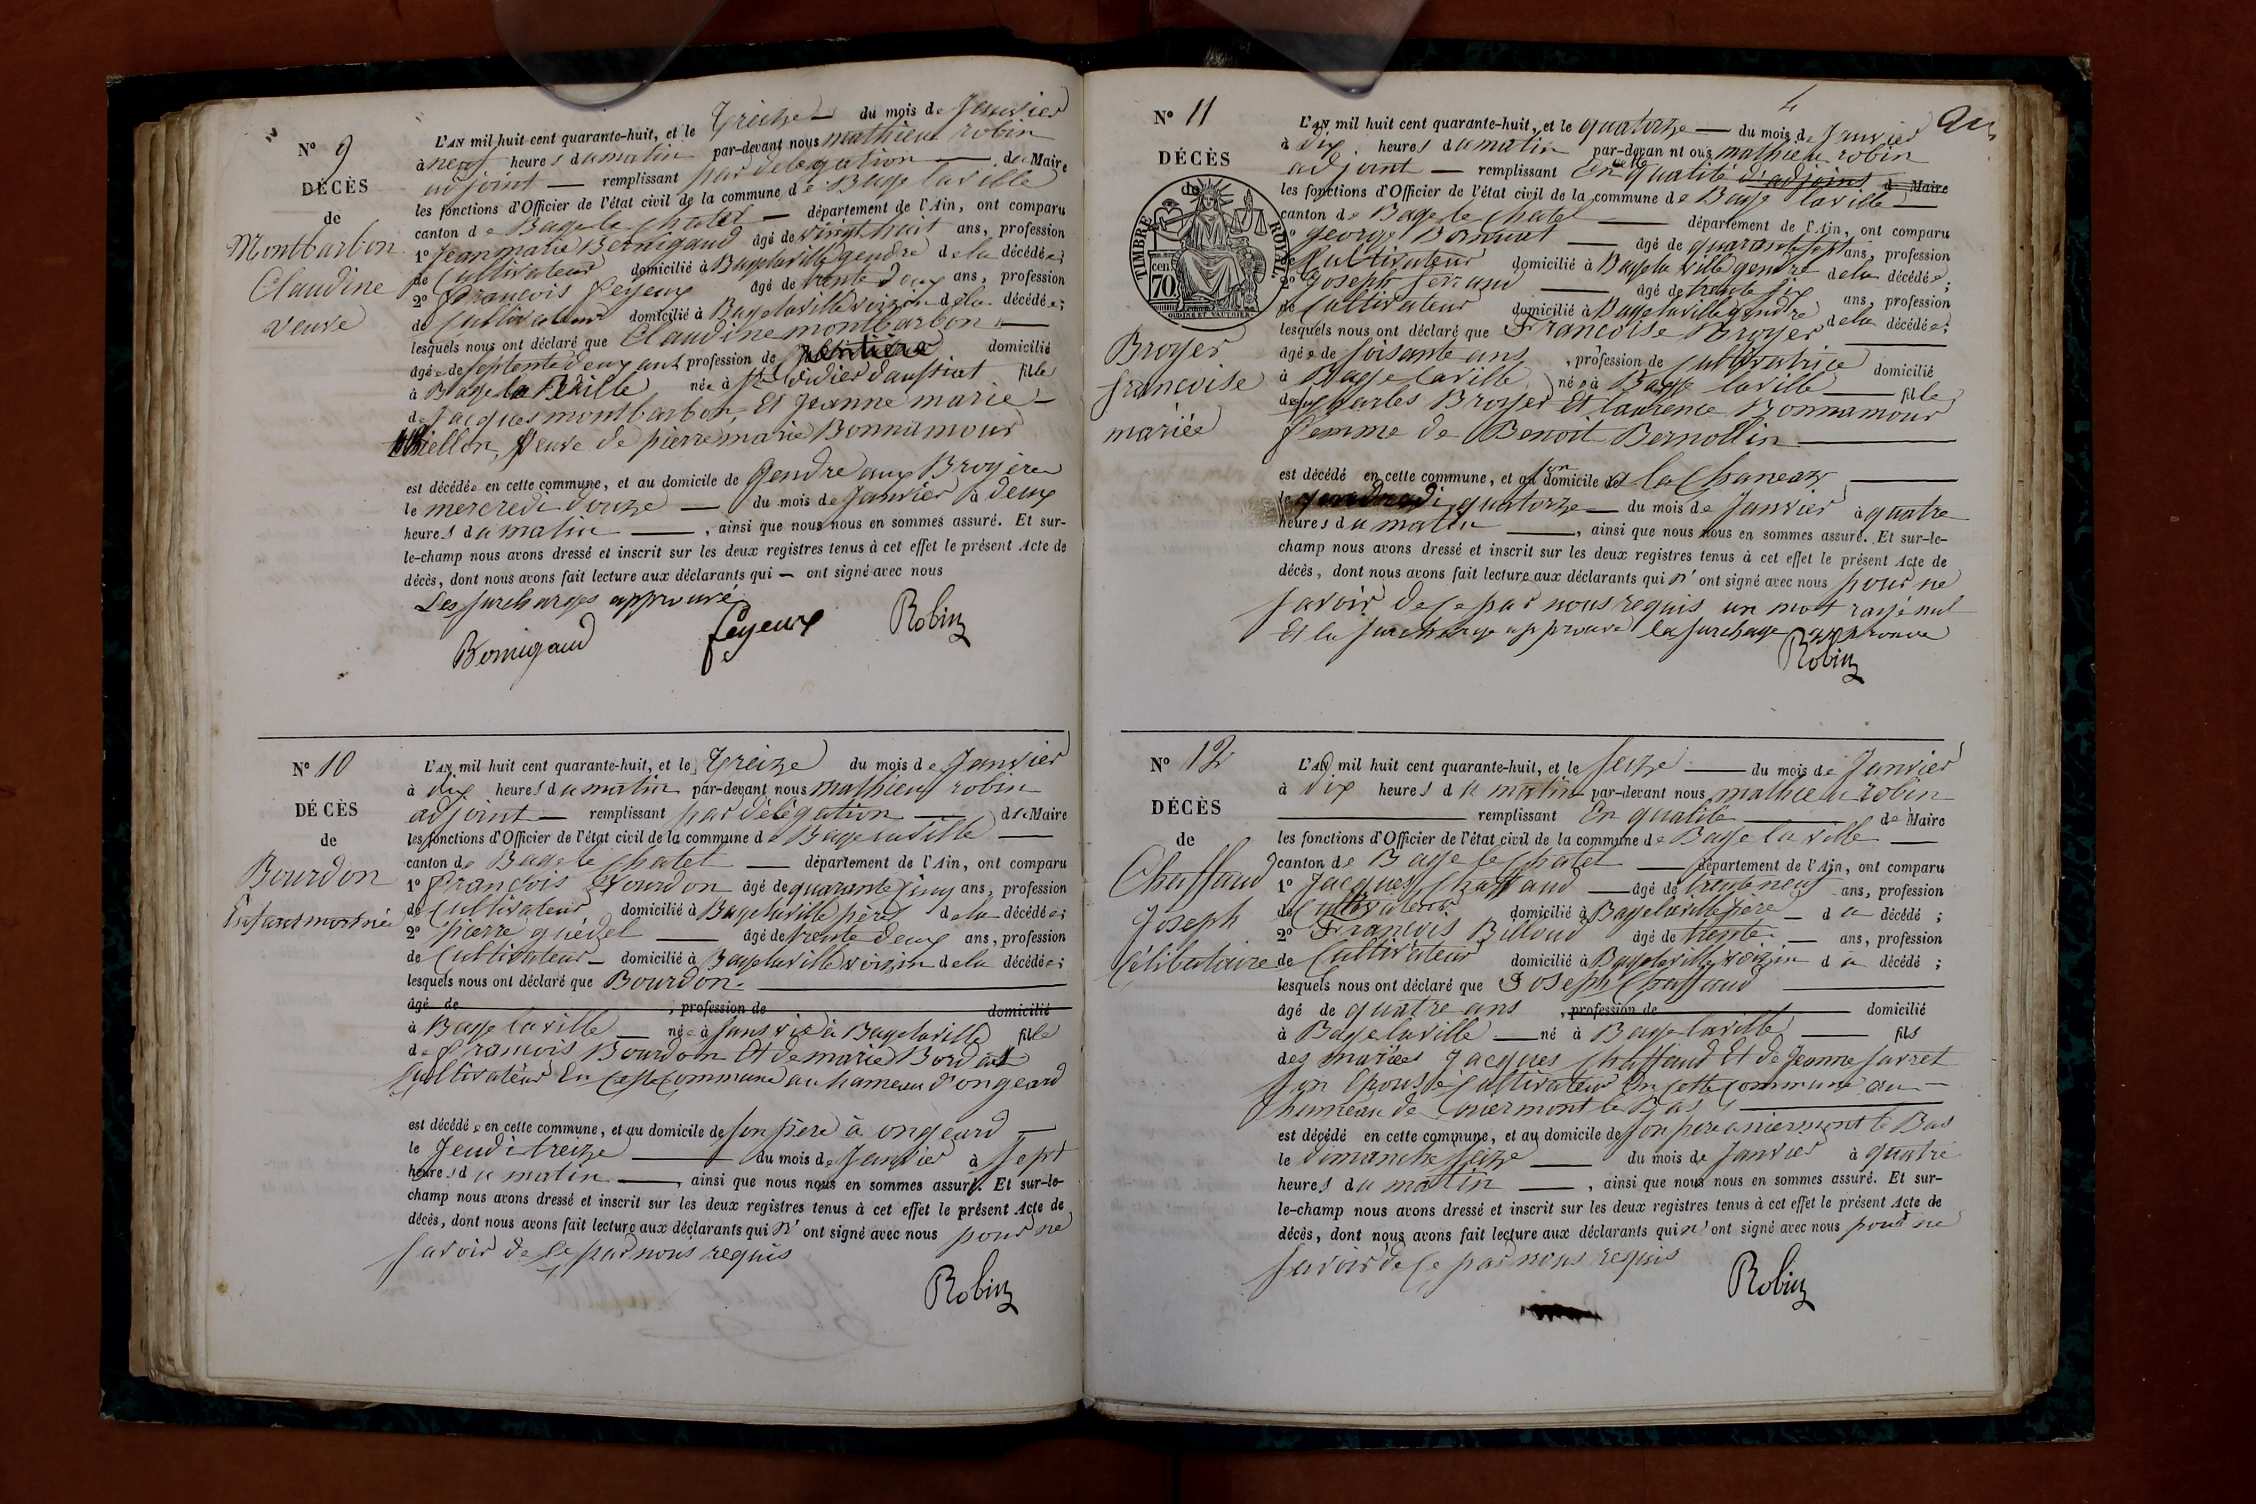 N° 9
DÉCÈS
de
Montbarbon
Claudine
veuve
L'AN mil huit cent quarante-huit, et le Treize du mois de Janvier
à neuf heures du matin par-devant nous mathieu robin
adjoint remplissant par délégation de Maire
les fonctions d'Officier de l'état civil de la commune de Bage laville
canton de Bage le Chatel département de l'Ain, ont comparu
1° Jean marie Bernigaud âgé de vingt huit ans, profession
de Cultivateur domicilié à Bagelaville gendre de la décédée;
2° francois feyeux âgé de trente deux ans, profession
de Cultivateur domicilié à Bagelaville voizin de la décédée;
lesquels nous ont déclaré que Claudine montbarbon
âgée de septente deux ans profession de rentiere domicilié
à Bage la Ville née à St didier d'aussiat fille
de Jacques montbarbon, Et Jeanne marie
veuve de pierre marie Bonnamour
est décédée en cette commune, et au domicile de Gendre aux Broyère
le mercredi douze du mois de Janvier à deux
heures du matin, ainsi que nous nous en sommes assuré. Et sur-
le-champ nous avons dressé et inscrit sur les deux registres tenus à cet effet le présent Acte de
décès, dont nous avons fait lecture aux déclarants qui — ont signé avec nous
Les surcharges approuvé
Bernigaud feyeux Robin
N° 10
DÉCÈS
de
Bourdon
Enfant mort née
L'AN mil huit cent quarante-huit, et le Treize du mois de Janvier
à dix heures du matin par-devant nous mathieu robin
adjoint remplissant par délégation de Maire
les fonctions d'Officier de l'état civil de la commune de Bage laville
canton de Bage le Chatel département de l'Ain, ont comparu
1° francois Bourdon âgé de quarante cinq ans, profession
de Cultivateur domicilié à Bagelaville père de la décédée;
2° pierre guédel âgé de trente deux ans, profession
de Cultivateur domicilié à Bagelaville voizin de la décédée;
lesquels nous ont déclaré que Bourdon
âgé de , profession de domicilié
à Bage laville née à sans vie à Bagelaville fille
de francois Bourdon Et de marie Bordat
Cultivateur En Cette Commune au hameau d'ongeard
est décédée en cette commune, et au domicile de son père à ongeard
le Jeudi treize du mois de Janvier à sept
heures du matin, ainsi que nous nous en sommes assuré. Et sur-le-
champ nous avons dressé et inscrit sur les deux registres tenus à cet effet le présent Acte de
décès, dont nous avons fait lecture aux déclarants qui n' ont signé avec nous pour ne
savoir de ce par nous requis
Robin
4
N° 11
DÉCÈS
de
TIMBRE ROYAL
70 cen.
Broyer
francoise
mariée
L'AN mil huit cent quarante-huit, et le quatorze du mois de Janvier
à dix heures du matin par-devan nt ous mathieu robin
adjoint remplissant En cette qualité d'adjoint de Maire
les fonctions d'Officier de l'état civil de la commune de Bage laville
canton de Bage le Chatel département de l'Ain, ont comparu
1° george âgé de quarante sept ans, profession
de Cultivateur domicilié à Bage la ville gendre de la décédée;
2° Joseph ferrand âgé de trente six ans, profession
de Cultivateur domicilié à Bagelaville gendre de la décédée;
lesquels nous ont déclaré que Francoise Broyer
âgée de soisante ans, profession de Cultivatrice domicilié
à Bage laville née à Bage laville fille
de Charles Broyer Et laurence Bonnamour
femme de Benoit Bernollin
est décédé en cette commune, et au son domicile a la Chanean
le quatorze du mois de Janvier à quatre
heures du matin, ainsi que nous nous en sommes assuré. Et sur-le-
champ nous avons dressé et inscrit sur les deux registres tenus à cet effet le présent Acte de
décès, dont nous avons fait lecture aux déclarants qui n' ont signé avec nous pour ne
savoir de ce par nous requis un mot rayé nul
Et la surcharge approuvé la surchage approuve
Robin
N° 12
DÉCÈS
de
Chaffaud
Joseph
Célibataire
L'AN mil huit cent quarante-huit, et le seize du mois de Janvier
à dix heures du matin par-devant nous mathieu robin
remplissant En qualité de Maire
les fonctions d'Officier de l'état civil de la commune de Bage la ville
canton de Bage le Chatel département de l'Ain, ont comparu
1° Jacques Chaffaud âgé de trente neuf ans, profession
de Cultivateur domicilié à Bagelaville père du décédé;
2° Francois Billoud âgé de trente ans, profession
de Cultivateur domicilié à Bagelaville voizin du décédé;
lesquels nous ont déclaré que Joseph Chaffaud
âgé de quatre ans, profession de domicilié
à Bage laville né à Bage laville fils
des mariées Jacques Chaffaud Et de Jeanne farret
Son Epouse Cultivateur En Cette Commune au
hameau de niermont le Bas
est décédé en cette commune, et au domicile de son père a niermont le Bas
le dimanche seize du mois de Janvier à quatre
heures du matin, ainsi que nous nous en sommes assuré. Et sur-
le-champ nous avons dressé et inscrit sur les deux registres tenus à cet effet le présent Acte de
décès, dont nous avons fait lecture aux déclarants qui n' ont signé avec nous pour ne
savoir de ce par nous requis
Robin